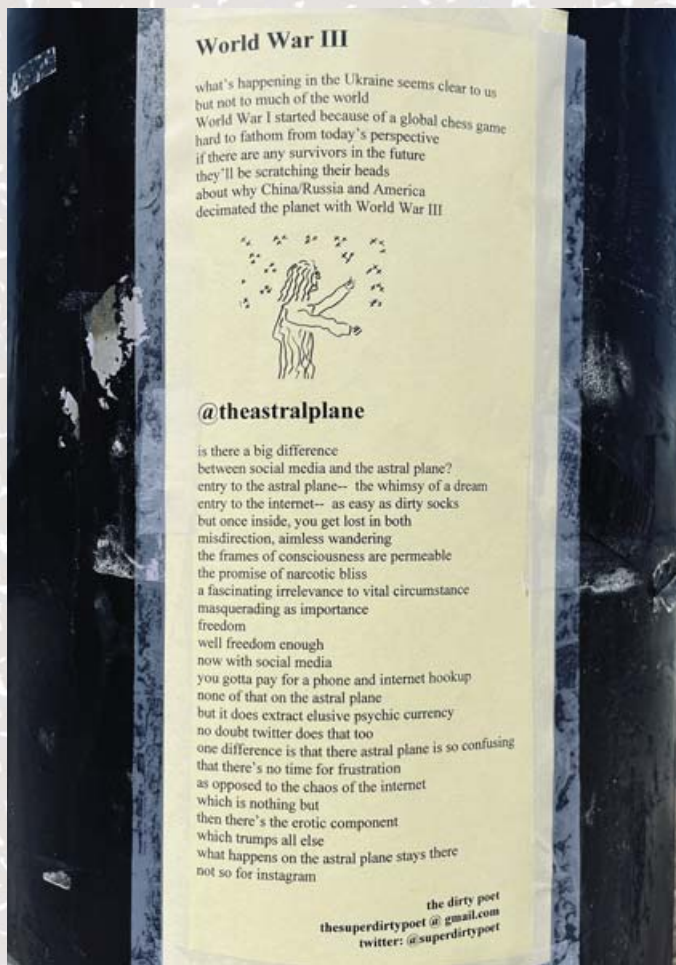 World War III
what's happening in the Ukraine seems clear to us
but not to much of the world
World War I started because of a global chess game
hard to fathom from today's perspective
if there are any survivors in the future
they'll be scratching their heads
about why China/Russia and America
decimated the planet with World War III
@theastralplane
is there a big difference
between social media and the astral plane?
entry to the astral plane-- the whimsy of a dream
entry to the internet-- as easy as dirty socks
but once inside, you get lost in both
misdirection, aimless wandering
the frames of consciousness are permeable
the promise of narcotic bliss
a fascinating irrelevance to vital circumstance
masquerading as importance
freedom
well freedom enough
now with social media
you gotta pay for a phone and internet hookup
none of that on the astral plane
but it does extract elusive psychic currency
no doubt twitter does that too
one difference is that there astral plane is so confusing
that there's no time for frustration
as opposed to the chaos of the internet
which is nothing but
then there's the erotic component
which trumps all else
what happens on the astral plane stays there
not so for instagram
the dirty poet
thesuperdirtypoet @ gmail.com
twitter: @superdirtypoet